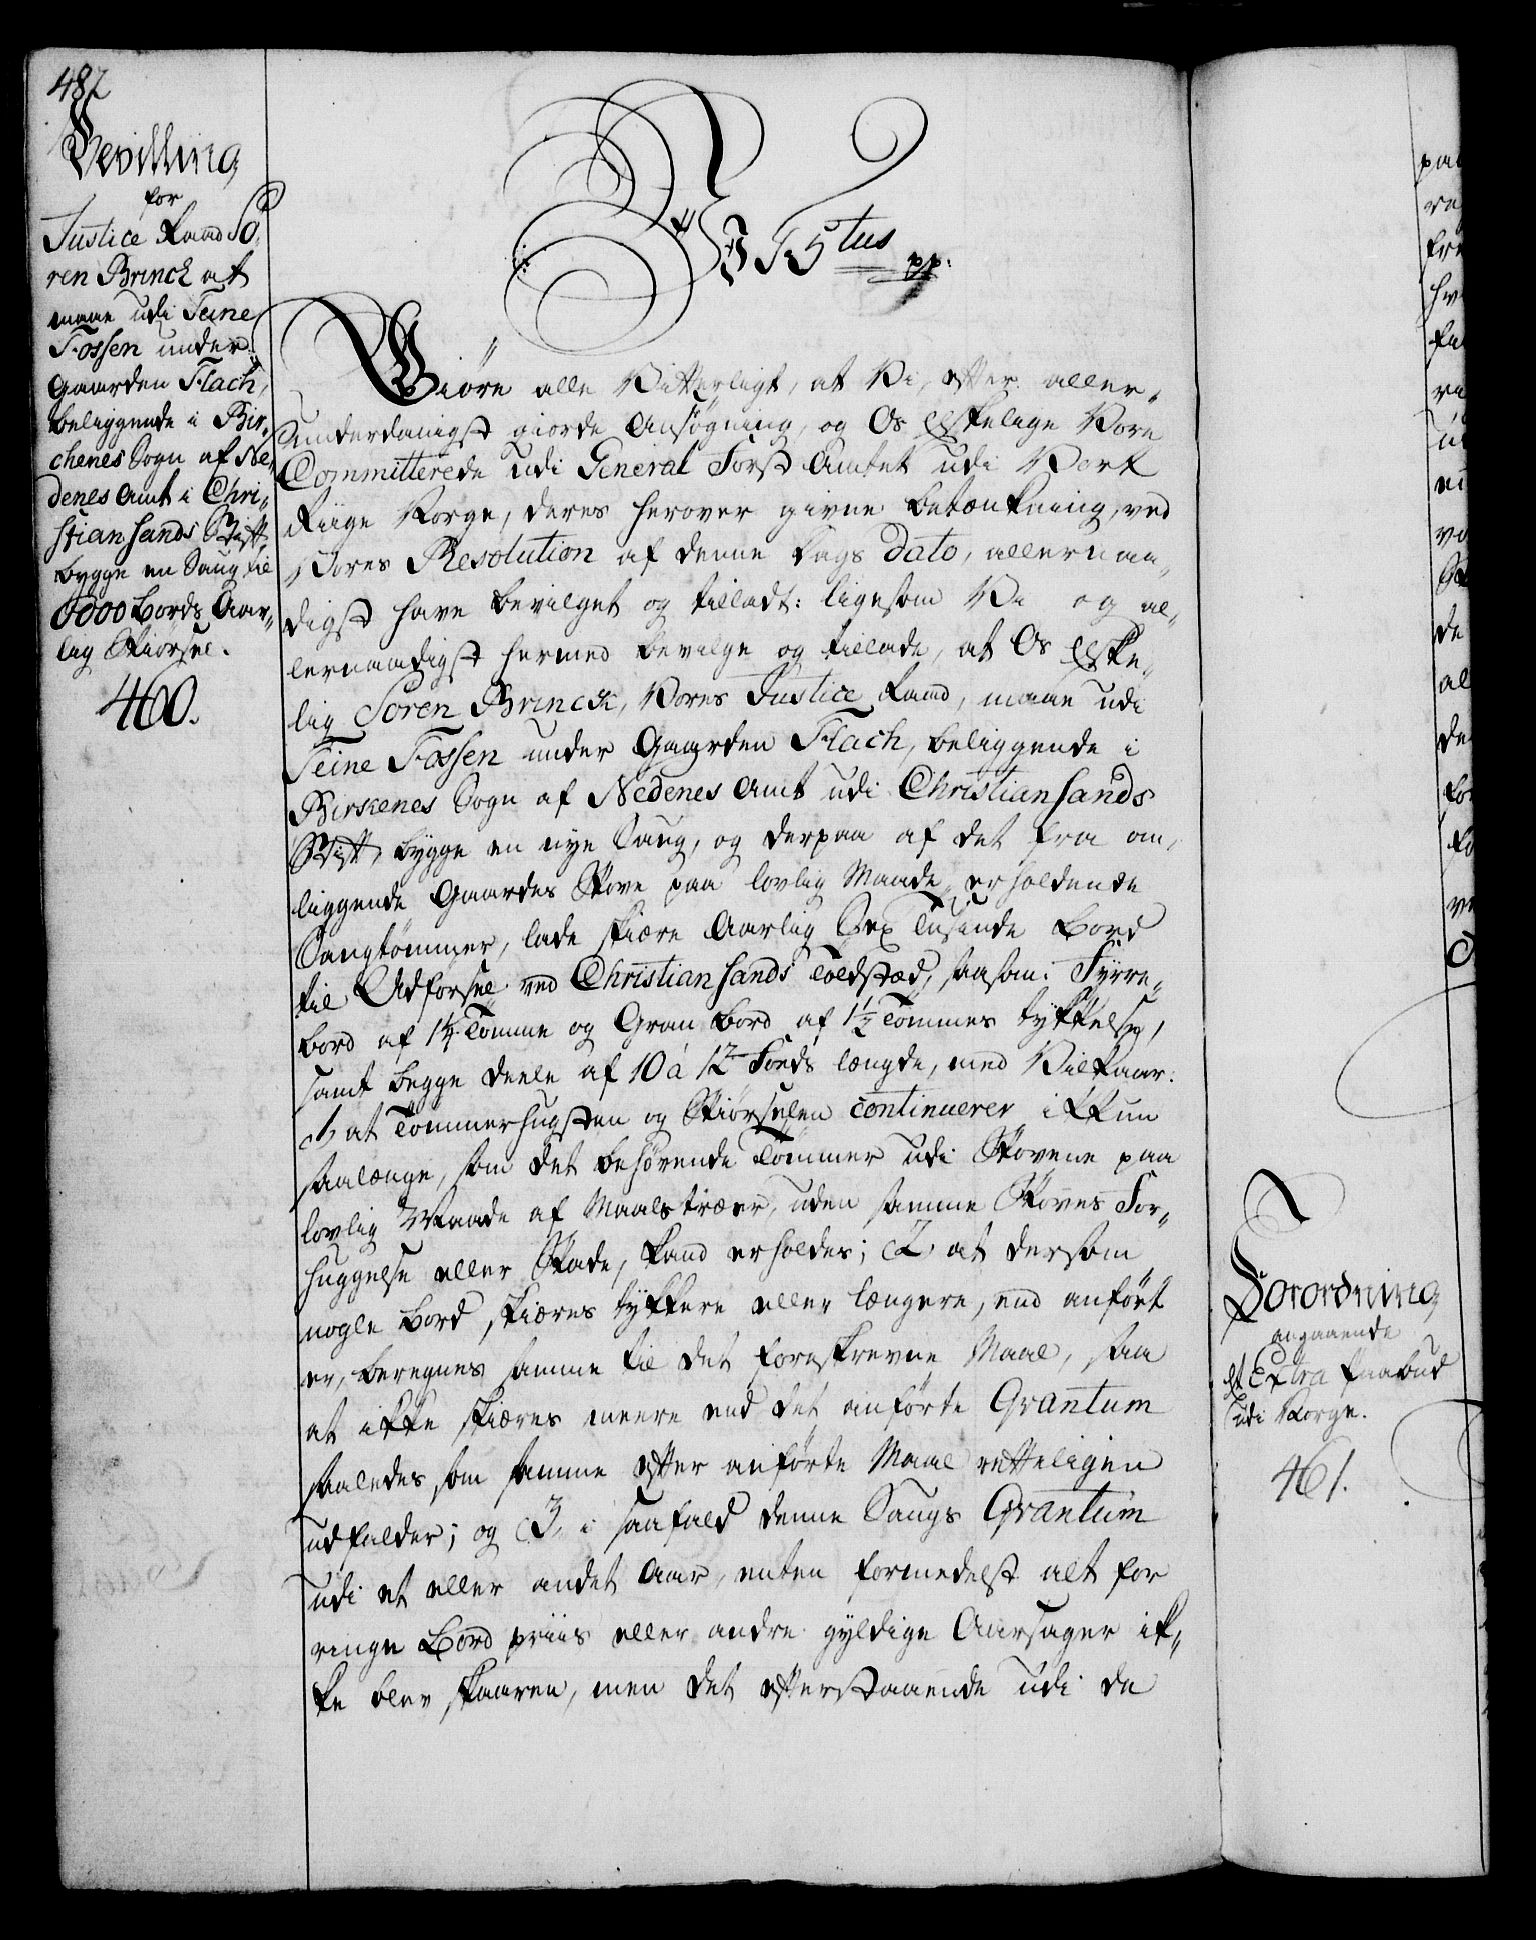 482
Bevilling
for
Justice Raad Sö-
ren Brinck at
maae udi Teine
Fossen under
Gaarden Flach,
beliggende i Bir-
chenes Sogn af Ne-
denes Amt i Chri-
stiansands Stift,
bygge en Saug til
6000 Bords Aar-
lig Skiørsel.
460.
Vi C 7tus pp:
Giöre alle Vitterligt, at Vi, efter aller-
underdanigst giorde Ansøgning, og Os Elskelige Vore
Committerede udi General Forst Amtet udi Vort
Riige Norge, deres herover givne Betænkning, ved
Vores Resolution af denne Dags Dato, allernaa-
digst have bevilget og tilladt: ligesom Vi og al-
lernaadigst hermed bevilge og tillade, at Os Elske-
lig Sören Brinck, Vores Justice Raad, maae udi
Teine Fossen under Gaarden Flach, beliggende i
Birkenes Sogn af Nedenes Amt udi Christiansands
Stift, bygge en nye Saug, og derpaa af det fra om-
liggende Gaardes Skove paa lovlig Maade erholdende
Saugtömmer, lade skiære Aarlig Sex Tusinde Bord
til Udförsel ved Christiansands Toldsted, saasom: Fyrre-
bord af 1¼ Tomme og Gran Bord af 1½ Tommes tykkelse,
samt begge Deele af 10 á 12 Foeds længde, med Vilkaar:
1, at Tömmerhugsten og Skiørselen continuerer ikkun
saalænge, som det behövende Tömmer udi Skovene paa
lovlig Maade af Maalstræer, uden samme Skoves For-
huggelse eller Skade, kand erholdes; 2, at dersom
nogle Bord skiæres tykkere eller længere, end anfört
er, beregnes samme til det foreskrevne Maal, saa
at ikke skiæres meere end det anförte Qvantum
saaledes som samme efter anförte Maal retteligen
udfalder; og 3, i saafald denne Saugs Qvantum
udi et eller andet Aar, enten formedelst alt for
ringe Bord priis eller andre gyldige Aarsager ik-
ke blev skaaren, men det efterstaaende udi de
Forordning
angaaende
et Extra Paabud
udi Norge.
461.